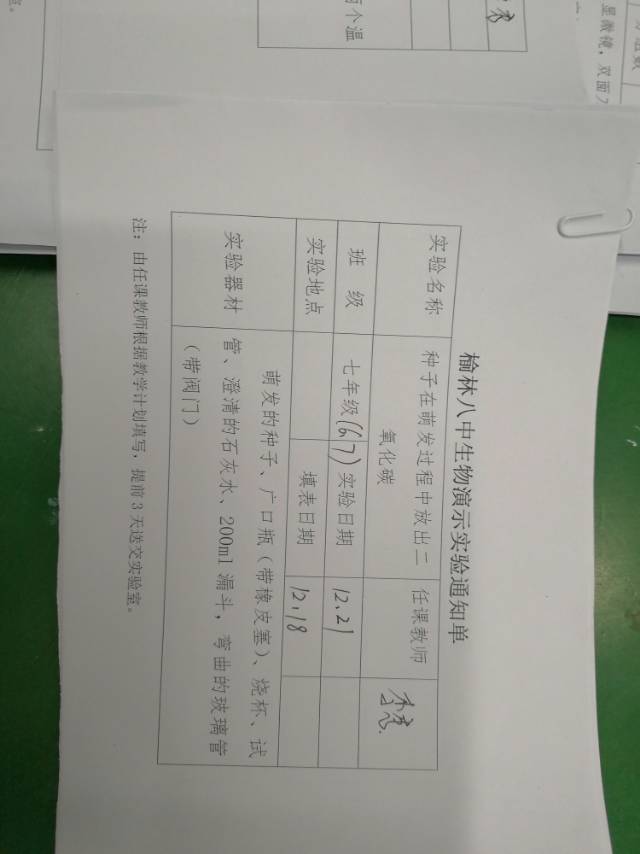 榆林八中生物演示实验通知单
实验名称
种子在萌发过程中放出二
氧化碳
任课教师
班 级
七年级(6.7)
实验日期
12.21
实验地点
填表日期
12.18
实验器材
萌发的种子、广口瓶（带橡皮塞）、烧杯、试
管、澄清的石灰水、200ml 漏斗，弯曲的玻璃管
（带阀门）
注：由任课教师根据教学计划填写，提前 3 天送交实验室。
个温
显微镜，双面刀